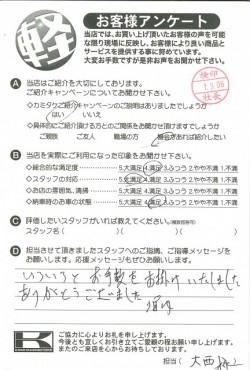 軽
お客様アンケート
当店では、お買い上げ頂いたお客様の声を可能
な限り現場に反映し、お客様により良い商品と
サービスを提供する事に努めています。
大変お手数ですが是非お声をお聞かせ下さい。
検印
1.9.06
社長
A 当店はご紹介を大切にしております。
ご紹介キャンペーンについてお聞かせ下さい。
・カミタケご紹介キャンペーンのご説明はありましたでしょうか
はい いいえ
・具体的にご紹介頂ける方とのご関係をお聞かせ頂けますでしょうか
ご親族 ご友人 職場の方 機会があれば紹介したい
B 当店を実際にご利用になった印象をお聞かせ下さい。
・総合的な満足度 5.大満足 4.満足 3.ふつう 2.やや不満 1.不満
・スタッフの対応 5.大満足 4.満足 3.ふつう 2.やや不満 1.不満
・お店の雰囲気、清掃 5.大満足 4.満足 3.ふつう 2.やや不満 1.不満
・納車時のお車の状態 5.大満足 4.満足 3.ふつう 2.やや不満 1.不満
C 評価したいスタッフがいれば教えてください。(複数回答可)
スタッフ名( )( )( )
D 担当させて頂きましたスタッフへのご指摘、ご指導メッセージを
お願いします。応援メッセージもぜひお願いします。
いろいろと お手数を お掛け いたしました
ありがとうございました
K
ご協力に心よりお礼を申し上げます。
今後とも宜しくお引き立てご愛顧の程お願い申し上げます。
またのご来店を心からお待ちしております。
担当( 大西